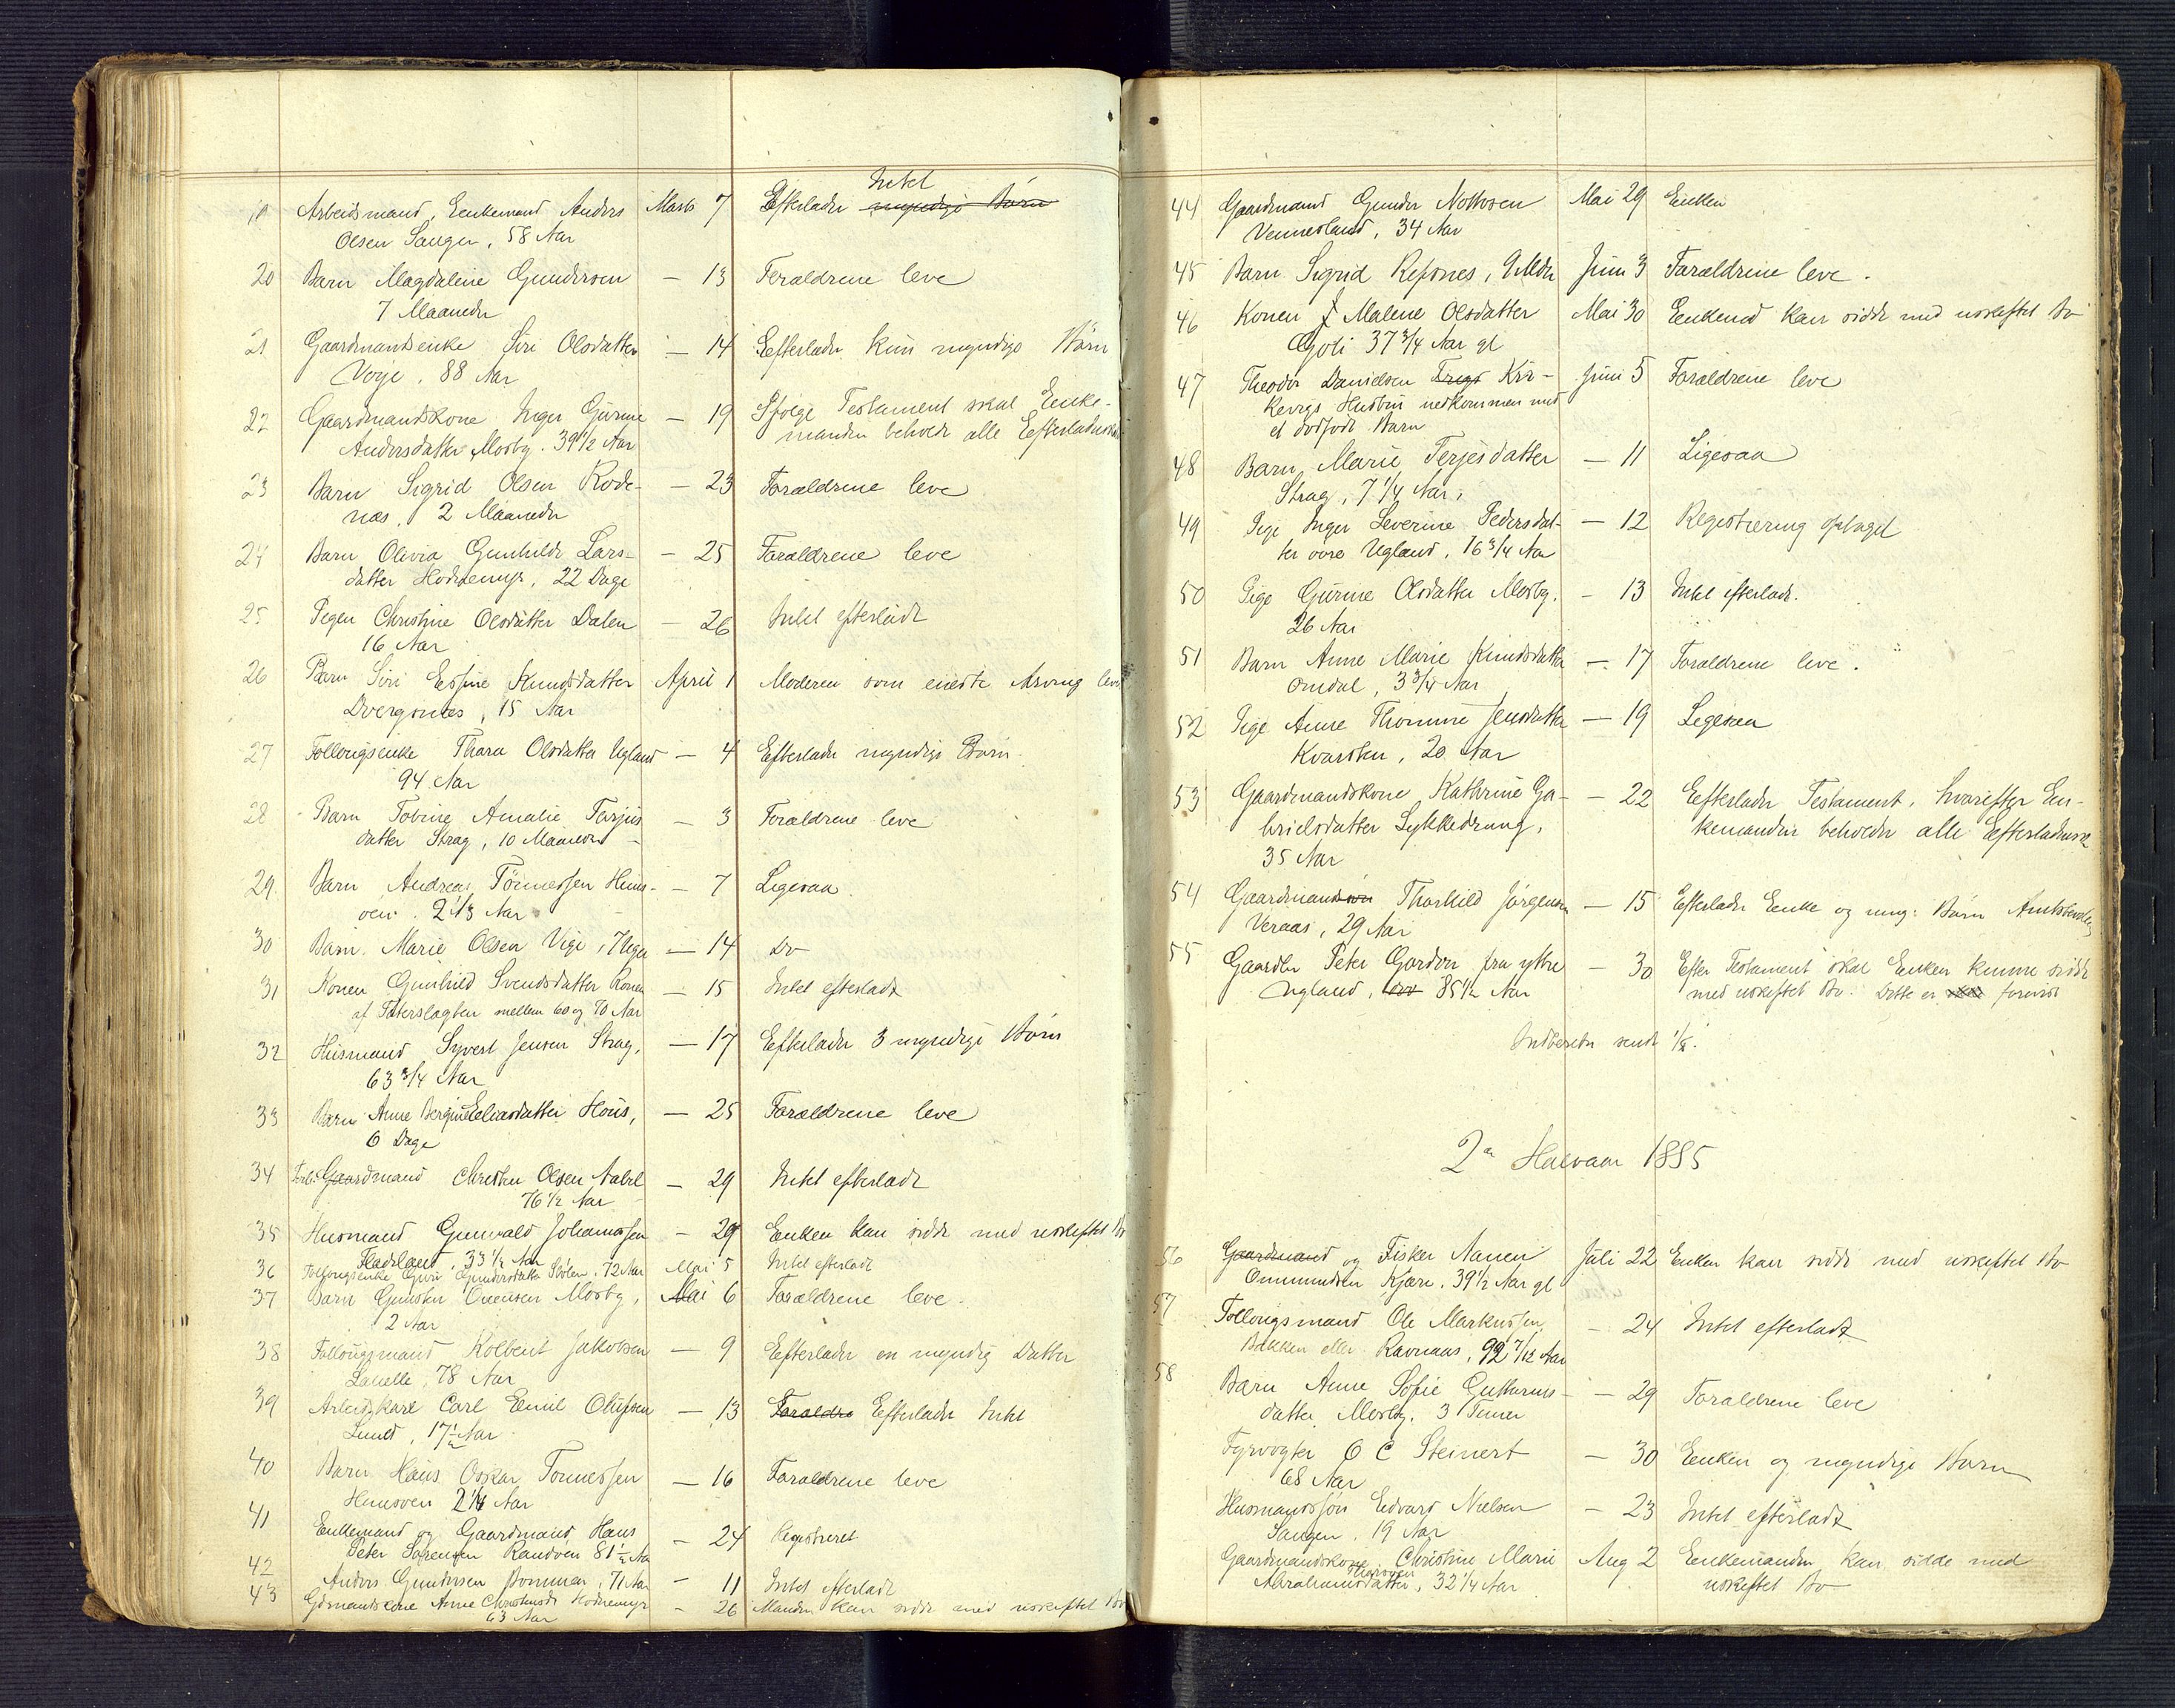 Intet
Arbeidsmand, Enkemand Anders Marts 7 Efterlader myndige Børn
Olsen Saugen, 58 Aar
20 Barn Magdaline Gundersen — 13 Forældrene leve
7 Maaneder
21 Gaardmandsenke Siri Olsdatter — 14 Efterlader kun myndige Børn
Voje, 88 Aar
22 Gaardmandskone Inger Gurine — 19 Ifølge Testament skal Enke-
Andersdatter Mosby. 39 1/2 Aar manden beholde alle
23 Barn Sigrid Olsen Rode- — 23 Forældrene leve
næs, 2 Maaneder
24 Barn Olivia Gunhilde Lars- — 25 Forældrene leve
datter Hodnemyr, 22 Dage
25 Pigen Christine Olsdatter Dalen — 26 Intet efterladt
16 Aar
26 Barn Siri Knudsdatter April 1 Moderen som eneste Arving lever
Dvergsnes, 15 Aar
27 Follougsenke Thora Olsdatter Ugland — 4 Efterlader myndige Børn
94 Aar
28 Barn Tobine Amalie Tarjus — 3 Forældrene leve
datter Strag, 10 Maaneder
29 Barn Andreas Tönnessen — 7 Ligesaa
2 1/3 Aar
30 Barn Marie Olsen Vige, 7 Uger — 14 Do
31 Konen Gunhild Svendsdatter — 15 Intet efterladt
af Taterslagten mellem 60 og 70 Aar
32 Husmand Syvert Jensen Strag, — 17 Efterlader 3 myndige Børn
63 3/4 Aar
33 Barn Anne Bergine Eliasdatter — 25 Forældrene leve
6 Dage
34 Gaardmand Christen Olsen — 29 Intet efterladt
76 1/2 Aar
35 Husmand Gunvald Johannssen — 29 Enken kan sidde med uskiftet Bo
33 1/2 Aar
36 Follougsenke Guri Gundersdatter 72 Aar Mai 5 Intet efterladt
37 Barn Gunsten Mosby, Mai 6 Forældrene leve.
2 Aar
38 Follougsmand Kolbent Jakobsen — 9 Efterlader en myndig Datter
78 Aar
39 Arbeidskarl Carl Emil Olufsen — 13 Foraldre Efterlader Intet
Lund, 17 1/2 Aar
40 Barn Hans Oskar Tonnessen — 16 Forældrene leve
2 1/4 Aar
41 Enkemand og Gaardmand Hans — 24 Registreret
Peter Sørensen Randøen 81 1/2 Aar
42 Anders Gundersen 71 Aar — 11 Intet efterladt
43 Gdmandskone Anne Hodnemyr — 26 Manden kan sidde med uskiftet Bo
63 Aar
44 Gaardmand Gunder Mai 29 Enken
Vennesland, 34 Aar
45 Barn Sigrid Repsnes, 9 Mdr Juni 3 Forældrene leve.
46 Konen Malene Olsdatter Mai 30 Enkemd kan sidde med uskiftet Bo
37 3/4 Aar gl
47 Theodor Danielsen Kir- Juni 5 Forældrene leve
kevigs Hustru nedkommen med
et dødfødt Barn
48 Barn Marie Terjesdatter — 11 Ligesaa
Strag, 7 1/4 Aar,
49 Pige Inger Severine Pedersdat- — 12 Registrering optaget
ter øvre Ugland, 16 3/4 Aar
50 Pige Gurine Olsdatter Mosby. — 13 Intet efterladt.
26 Aar
51 Barn Anne Marie Knudsdatter — 17 Forældrene leve.
Omdal, 3 3/4 Aar
52 Pige Anne Thomine Jensdatter — 19 Ligesaa
20 Aar
53 Gaardmandskone Kathrine Ga- — 22 Efterlader Testament, hvorefter En-
brielsdatter Lykkedrang, kemanden beholder alle
35 Aar
54 Gaardmand Thorkild Jørgensen — 15 Efterlader Enke og
Veraas, 29 Aar
55 Gaardbr Peter Gordon fra ytre — 30 Efter Testament skal Enken kunne sidde
Ugland, 85 1/2 Aar med uskiftet Bo. Dette er forevist
sendt
2n Halvaar 1885
56 Gaardmand og Fisker Juli 22 Enken kan sidde med uskiftet Bo
Ommundsen Kjære, 39 1/2 Aar gl
57 Follougsmand Ole Markussen — 24 Intet efterladt
Bakken eller Ravnaas, 92 7/12 Aar
58 Barn Anne Sofie Guttorms- — 29 Forældrene leve
datter Mosby, 3 Timer
Fyrvogter O C Steinert — 30 Enken og myndige Børn
68 Aar
Husmandssøn Edvard Nielsen — 23 Intet efterladt
Saugen, 19 Aar
Gaardmandskone Christine Marie Aug 2 Enkemanden kan sidde med
Abrahamsdatter, 32 1/4 Aar uskiftet Bo